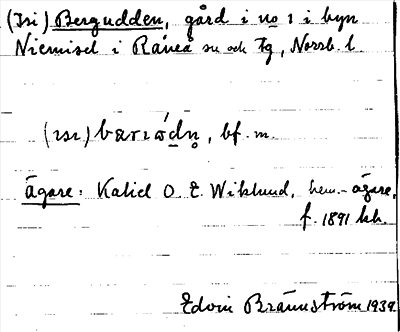 (Isi) Bergudden, gård i no 1 i byn
Niemisel i Råneå sn och tg, Norrb. l.
bf. m.
Ägare: Kalid O. E. Wiklund, hem.-ägare,
f. 1891 hh.
Edvin Brännström 1939